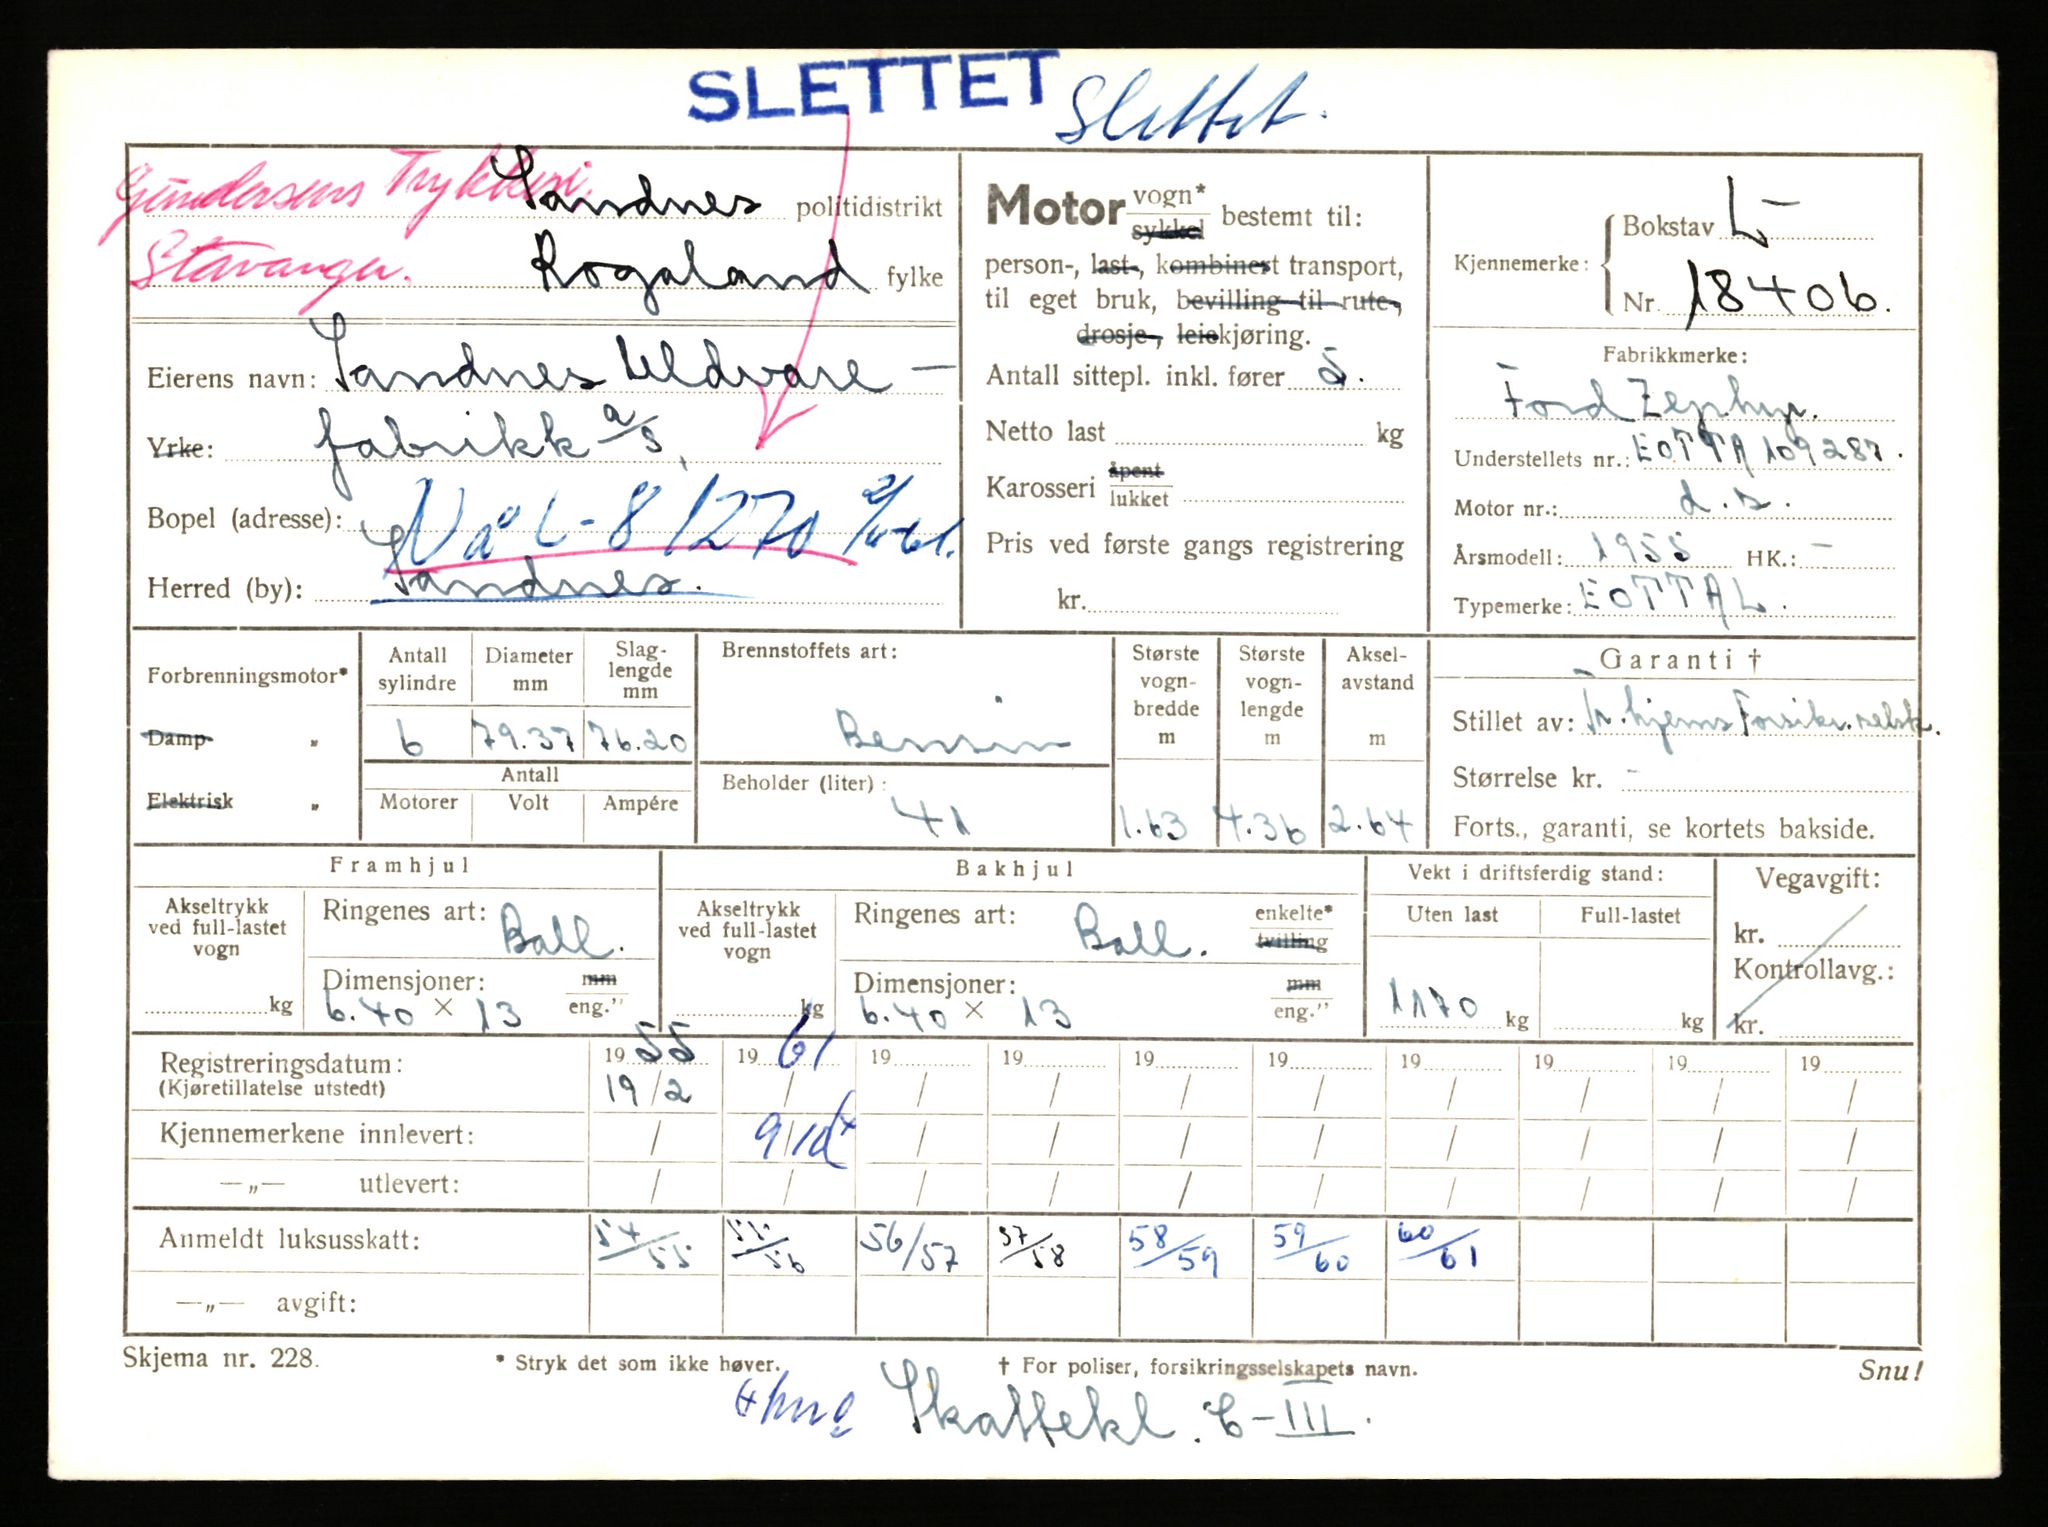 SLETTET Slettet.
Gundersens Trykkeri.
Stavanger.
Sandnes politidistrikt
Rogaland fylke
Eierens navn: Sandnes Uldvare-
Yrke: fabrikk a/s
Bopel (adresse): Nå L-81270
Herred (by): Sandnes.
Motor vogn* sykkel bestemt til:
person-, last-, kombinert transport,
til eget bruk, bevilling til rute-,
drosje-, leiekjøring.
Antall sittepl. inkl. fører 5.
Netto last kg
Karosseri åpent lukket
Pris ved første gangs registrering
kr.
Kjennemerke: Bokstav L-
Nr. 18406.
Fabrikkmerke:
Ford Zephyr.
Understellets nr.: EOTTA 109287.
Motor nr.: d.s.
Årsmodell: 1955 HK.: -
Typemerke: EOTTAL.
Forbrenningsmotor*
Damp „
Elektrisk „
Antall sylindre 6
Diameter mm 79.37
Slaglengde mm 76.20
Antall
Motorer Volt Ampére
Brennstoffets art:
Bensin
Beholder (liter):
41
Største vognbredde m 1.63
Største vognlengde m 4.36
Akselavstand m 2.64
Garanti †
Stillet av: Tr.hjems Forsikr.selsk.
Størrelse kr. -
Forts., garanti, se kortets bakside.
Framhjul
Akseltrykk ved full-lastet vogn kg
Ringenes art: Ball.
Dimensjoner: mm
6.40 × 13 eng."
Bakhjul
Akseltrykk ved full-lastet vogn kg
Ringenes art: Ball. enkelte* tvilling
Dimensjoner: mm
6.40 × 13 eng."
Vekt i driftsferdig stand:
Uten last Full-lastet
1170 kg kg
Vegavgift:
kr.
Kontrollavg.:
kr.
Registreringsdatum: 19 55 19 61 19 19 19 19 19 19 19 19
(Kjøretillatelse utstedt) 19/2 / / / / / / / / /
Kjennemerkene innlevert: / 9/10 / / / / / / / /
—„— utlevert: / / / / / / / / / /
Anmeldt luksusskatt: 54/55 55/56 56/57 57/58 58/59 59/60 60/61
—„— avgift:
Skjema nr. 228. * Stryk det som ikke høver. † For poliser, forsikringsselskapets navn. Snu!
Skattekl. C-III.